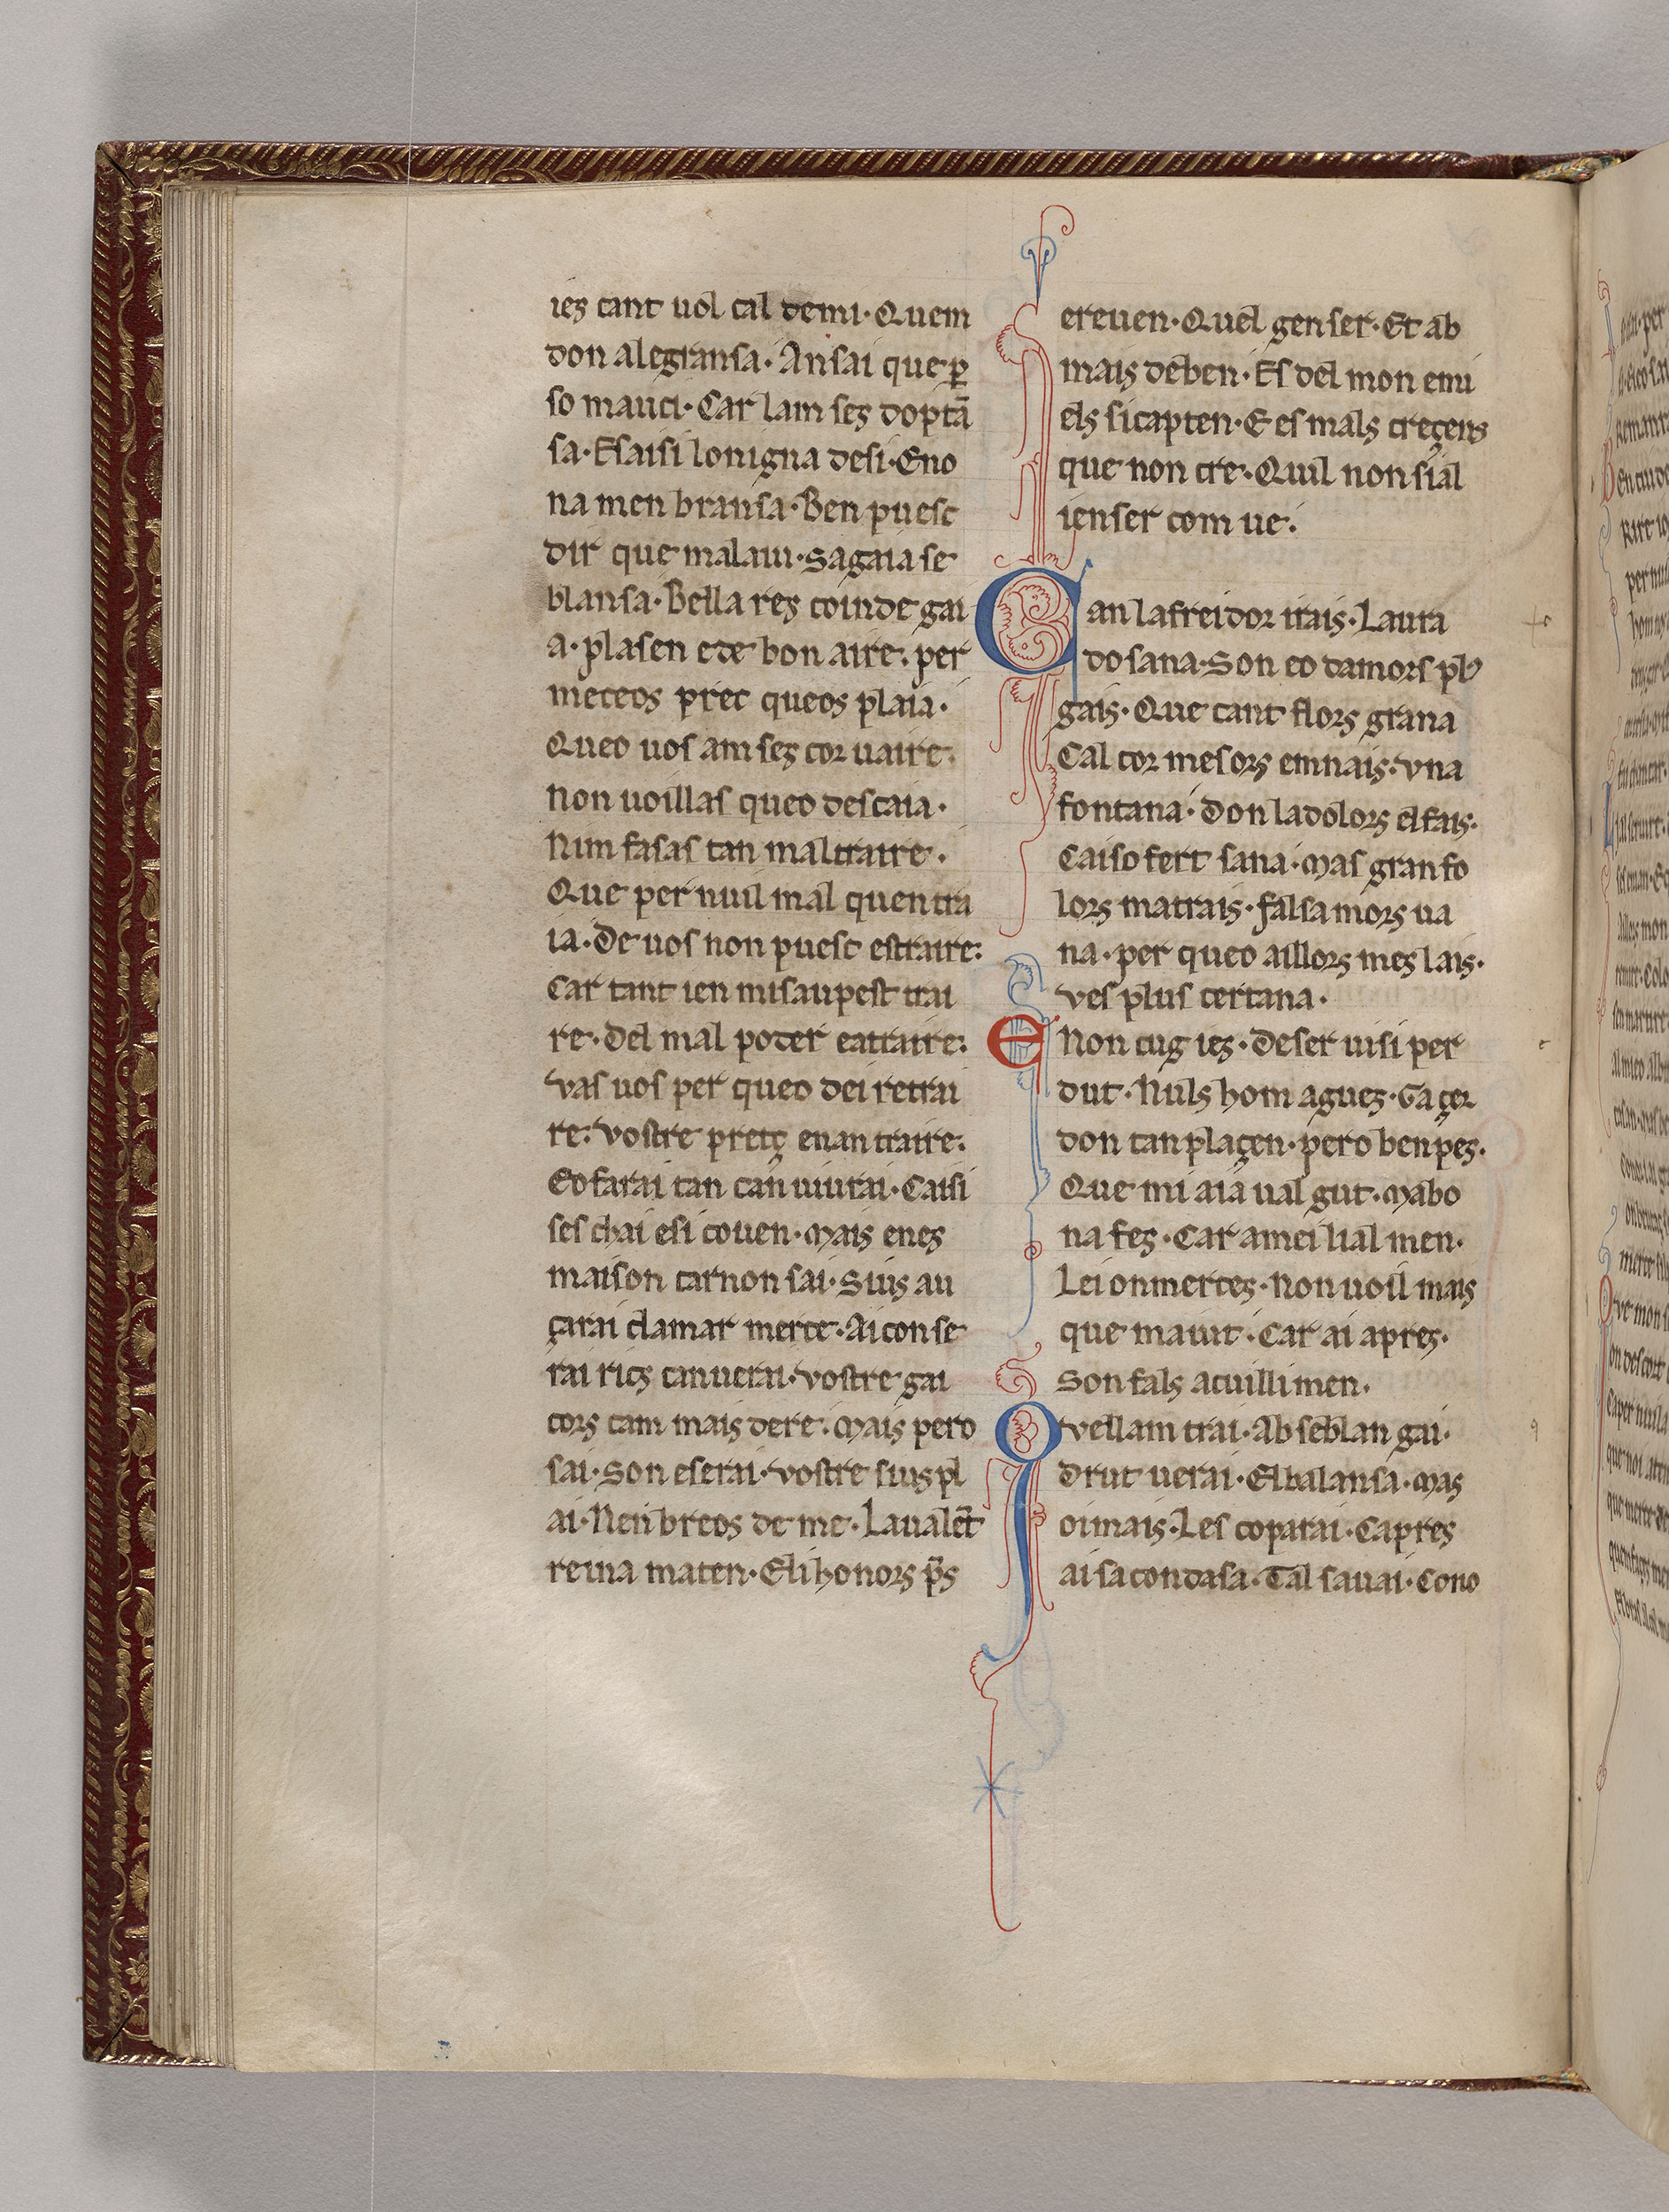 ies cant uol cal demi· Quem
don alegransa· Ansai que ꝑ
so mauci· Car lam ses doptā
sa· Esaisi lonigna desi· Eno
na men bransa· Ben puesc
dir que malaui· sagaia se
blansa· Bella res coinde gai
a· plasen e de bon aire· per
merceos prec queos plaia·
Queo uos am ses cor uaire·
Non uoillas queo descaia·
Nim fasas tan maltraire·
Que per nuil mal quen tra
ia· De uos non puesc estraire:
Car tant ien misaupest trai
re· del mal poder eattaire:
vas uos per queo dei retrai
re: vostre pretç enantraire:
Eo farai tan can uiurai· Caisi
ses chai esi couen· Mais enes
maison car non sai· Siuis au
çarai clamar merce· Ai con se
rai rics can uerai· vostre gai
cors cam mais de re· Mais pero
sai· Son eserai· vostre sius pl
ai· Nenbreos de me· La ualēt
reina maten· Eli honors p̄s
ereuen· Quel genser· Et ab
mais deben· Es del mon emi
els sicapten· E es mals creçens
que non cre· Quil non sial
ienser com ue·
Qan la freidor irais· Laura
do sana· Son eo damors pl9
gais· Que cant flors grana
Cal cor mesors emnais· vna
fontana· Don la dolors el fais·
Caiso fert sana· Mas gran fo
lors matrais· falsamors ua
na· per queo aillors mes lais·
ves plus certana·
E Non cug ies· Deser uisi per
dut· Nuls hom agues· Gaçer
don tan plaçen· pero ben pes·
Que mi aia ual gut· Mabo
na fes· Car amei lial men·
Lei on merces· Non uoil mais
que maiut· Car ai apres·
Son fals acuillimen·
Qvellam trai· Ab seblan gai·
Drut uerai· El balansa· Mas
oimais· Les coparai· Capres
ai sacondasa· Tal sauai· Cono